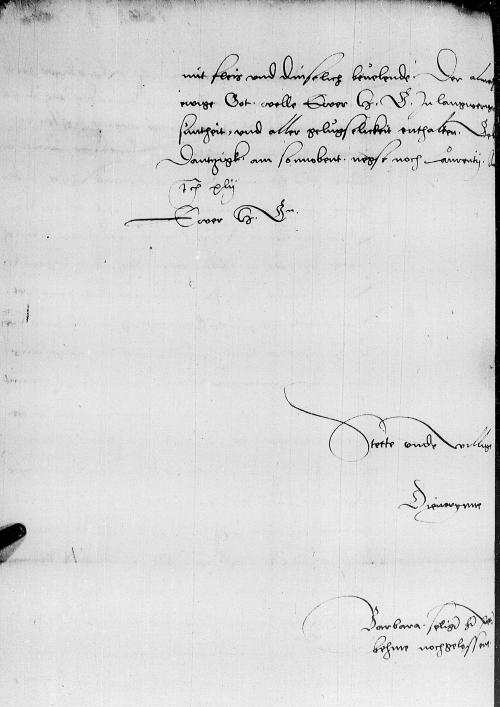 mit fleis vnd dinstlich beuelende. Der alme
ewige Got. welle Ewer H. G. In langwerge
suntheit. vnd aller gelugseligkeit enthalten.
Dantzigk. am sonnobent. negst noch Laurentij.
xlij
Ewer H. G.
Stette vnde willige
Dienerynne
Barbara. seligen
behme nochgelossen